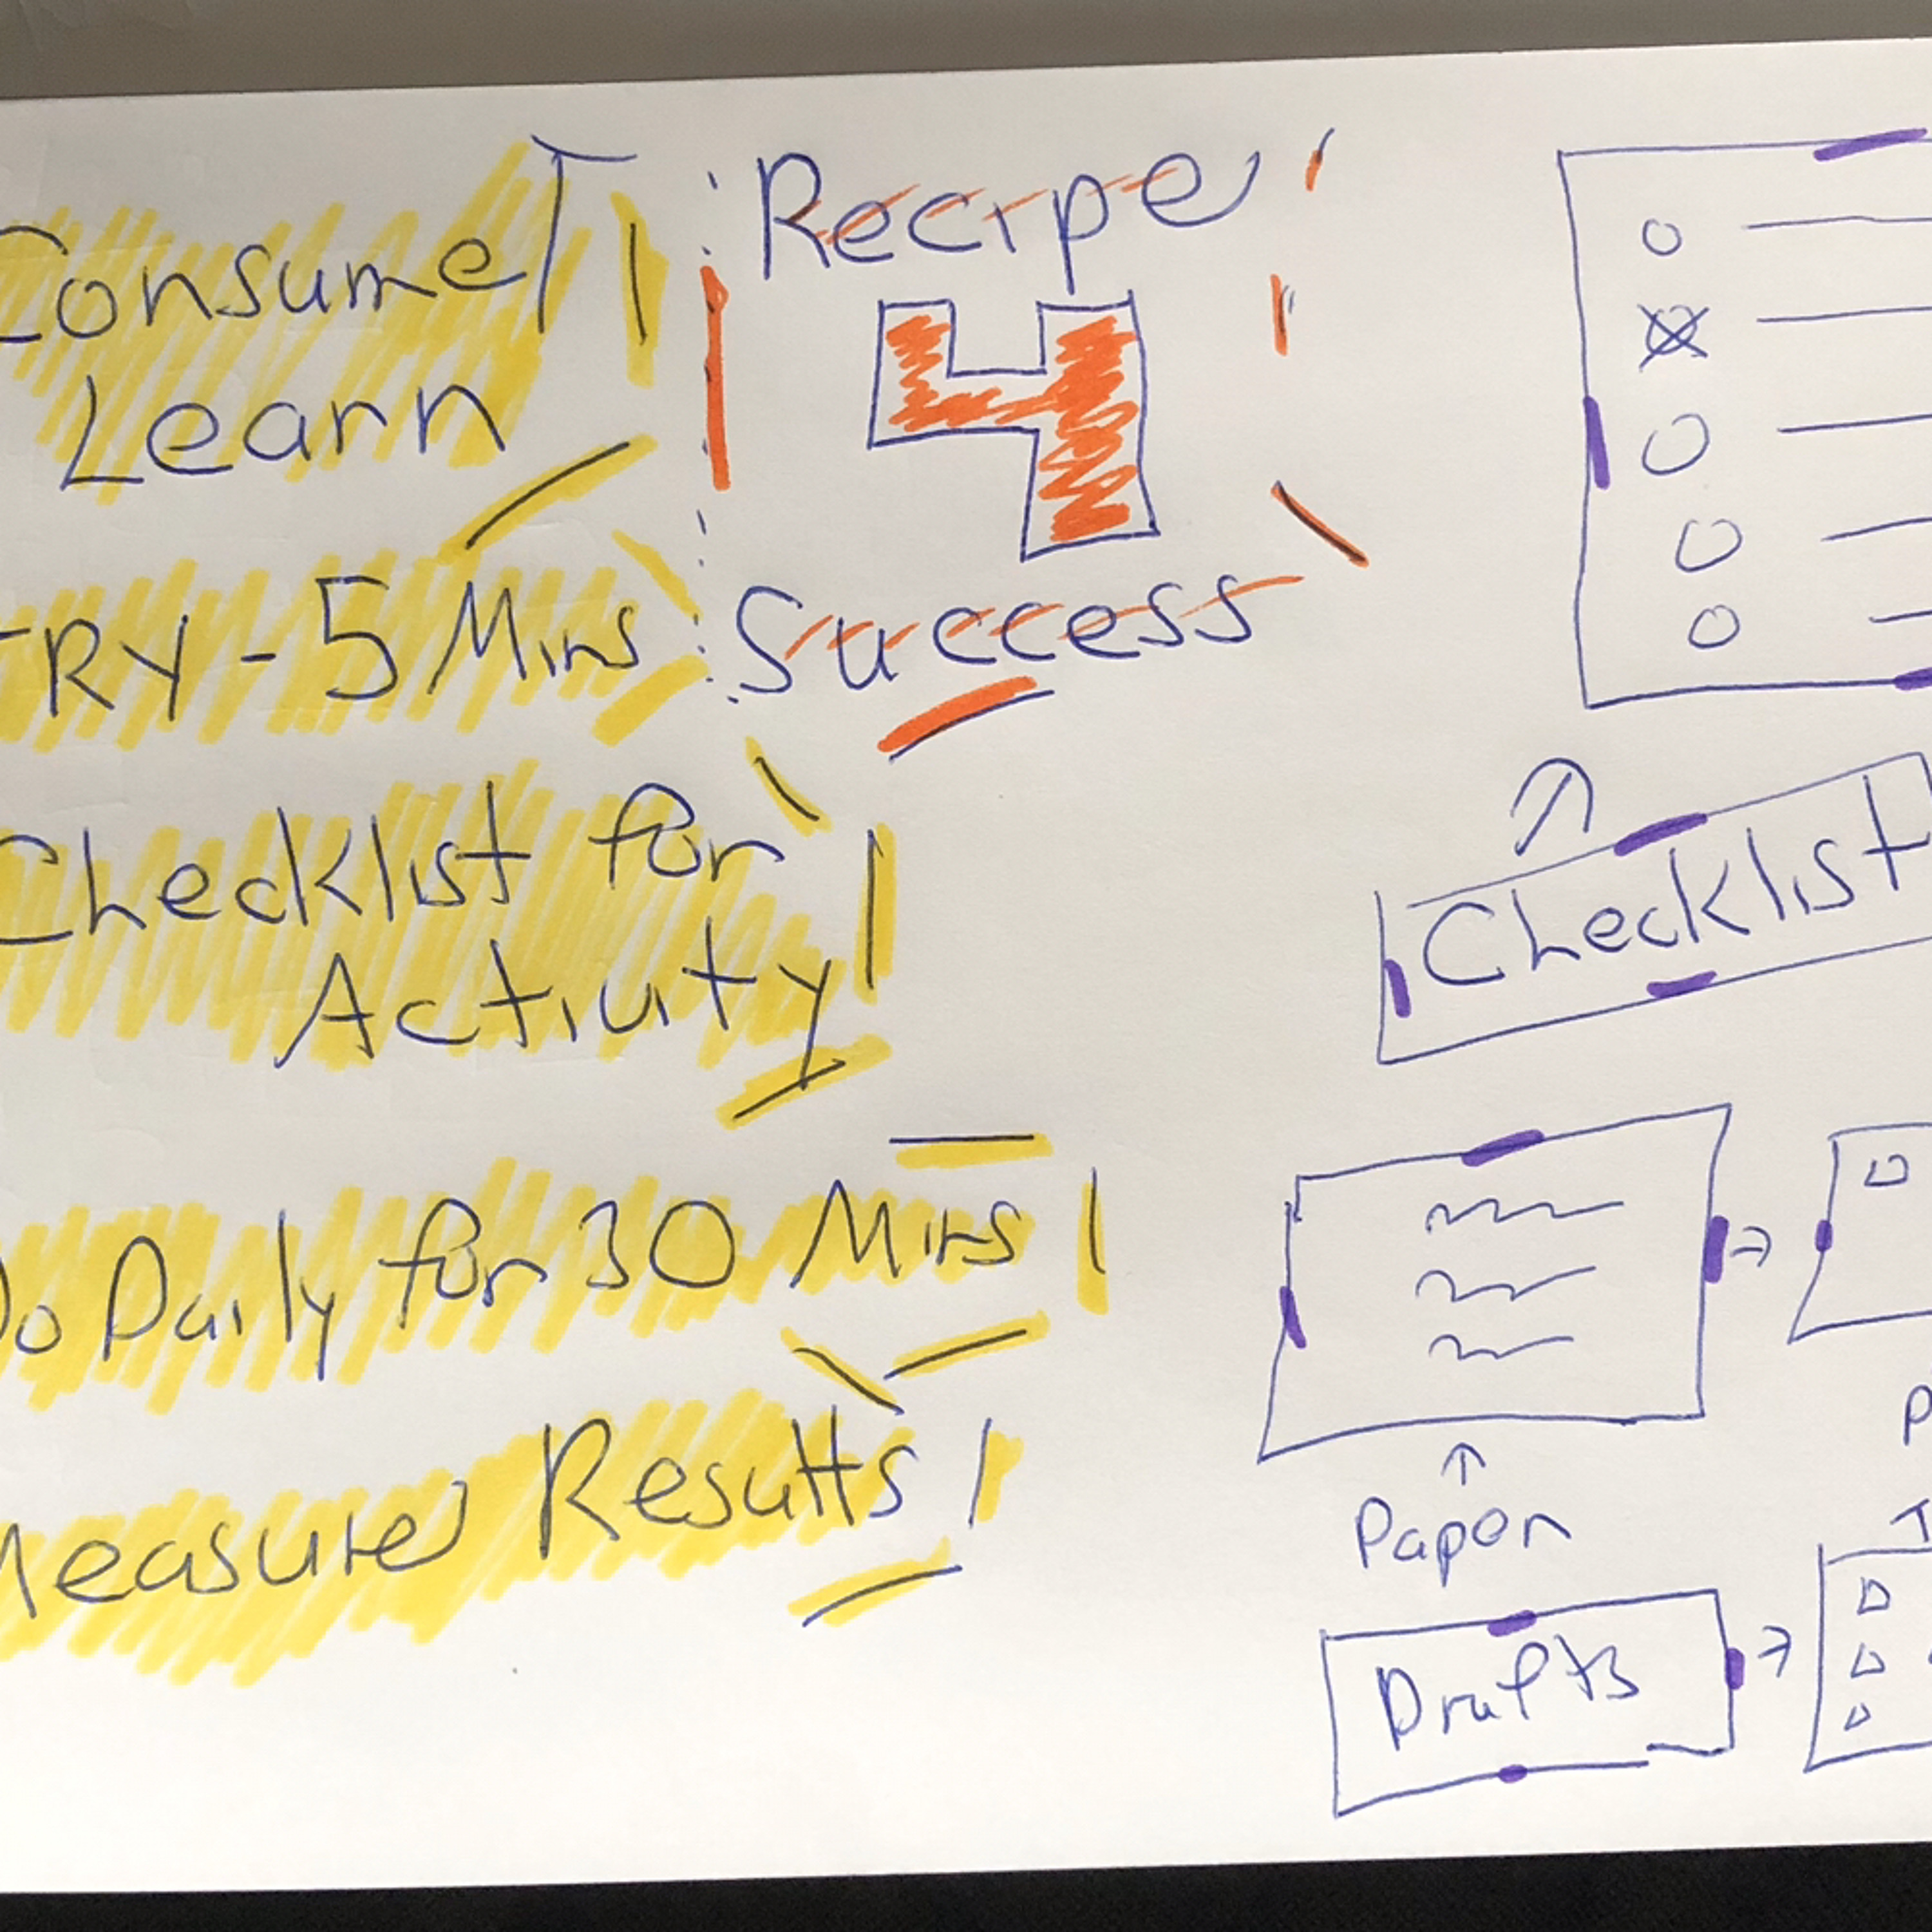 Consume
Learn
TRY - 5 Mins
Checklist for
Activity
Do Daily for 30 Mins
Measure Results
Recipe
4
Success
Checklist
Paper
Drafts